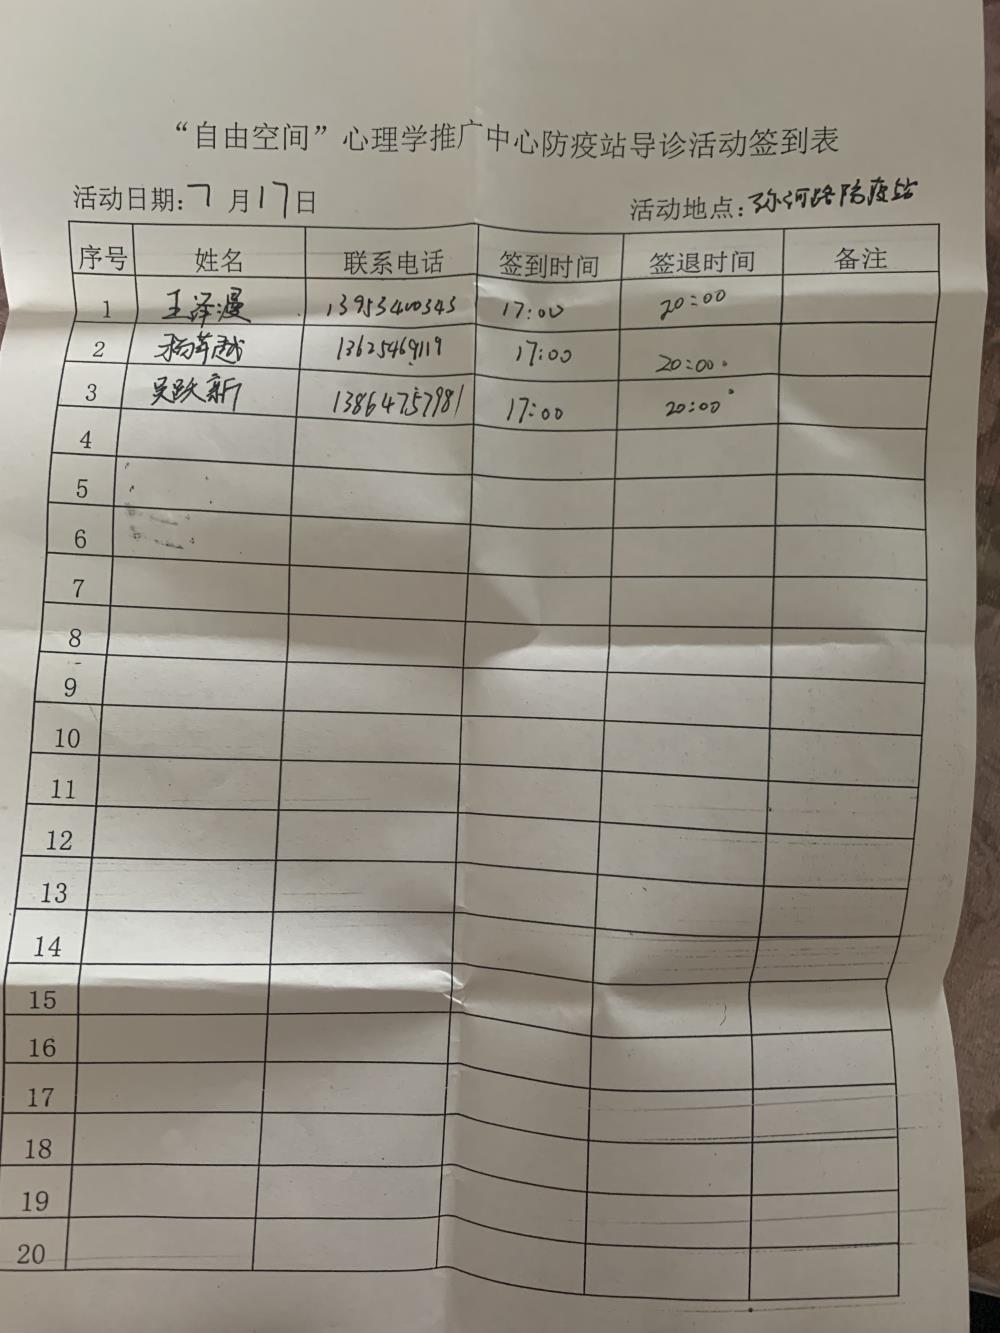 “自由空间”心理学推广中心防疫站导诊活动签到表
活动日期:7月17日 活动地点:弥河路防疫站
序号 姓名 联系电话 签到时间 签退时间 备注
1 王泽漫 13953400343 17:00 20:00
2 杨 越 13625469119 17:00 20:00.
3 吴跃新 13864757981 17:00 20:00
4
5
6
7
8
9
10
11
12
13
14
15
16
17
18
19
20